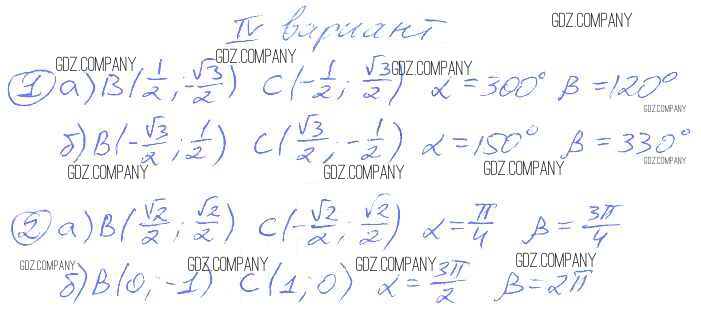 IV вариант GDZ.COMPANY
GDZ.COMPANY GDZ.COMPANY GDZ.COMPANY
1 а) B(1/2; -√3/2) C(-1/2; √3/2) α=300° β=120°
GDZ.COMPANY
б) B(-√3/2; 1/2) C(√3/2; -1/2) α=150° β=330°
GDZ.COMPANY GDZ.COMPANY GDZ.COMPANY GDZ.COMPANY
2 а) B(√2/2; √2/2) C(-√2/2; √2/2) α=π/4 β=3π/4
GDZ.COMPANY GDZ.COMPANY GDZ.COMPANY GDZ.COMPANY
б) B(0; -1) C(1; 0) α=3π/2 β=2π